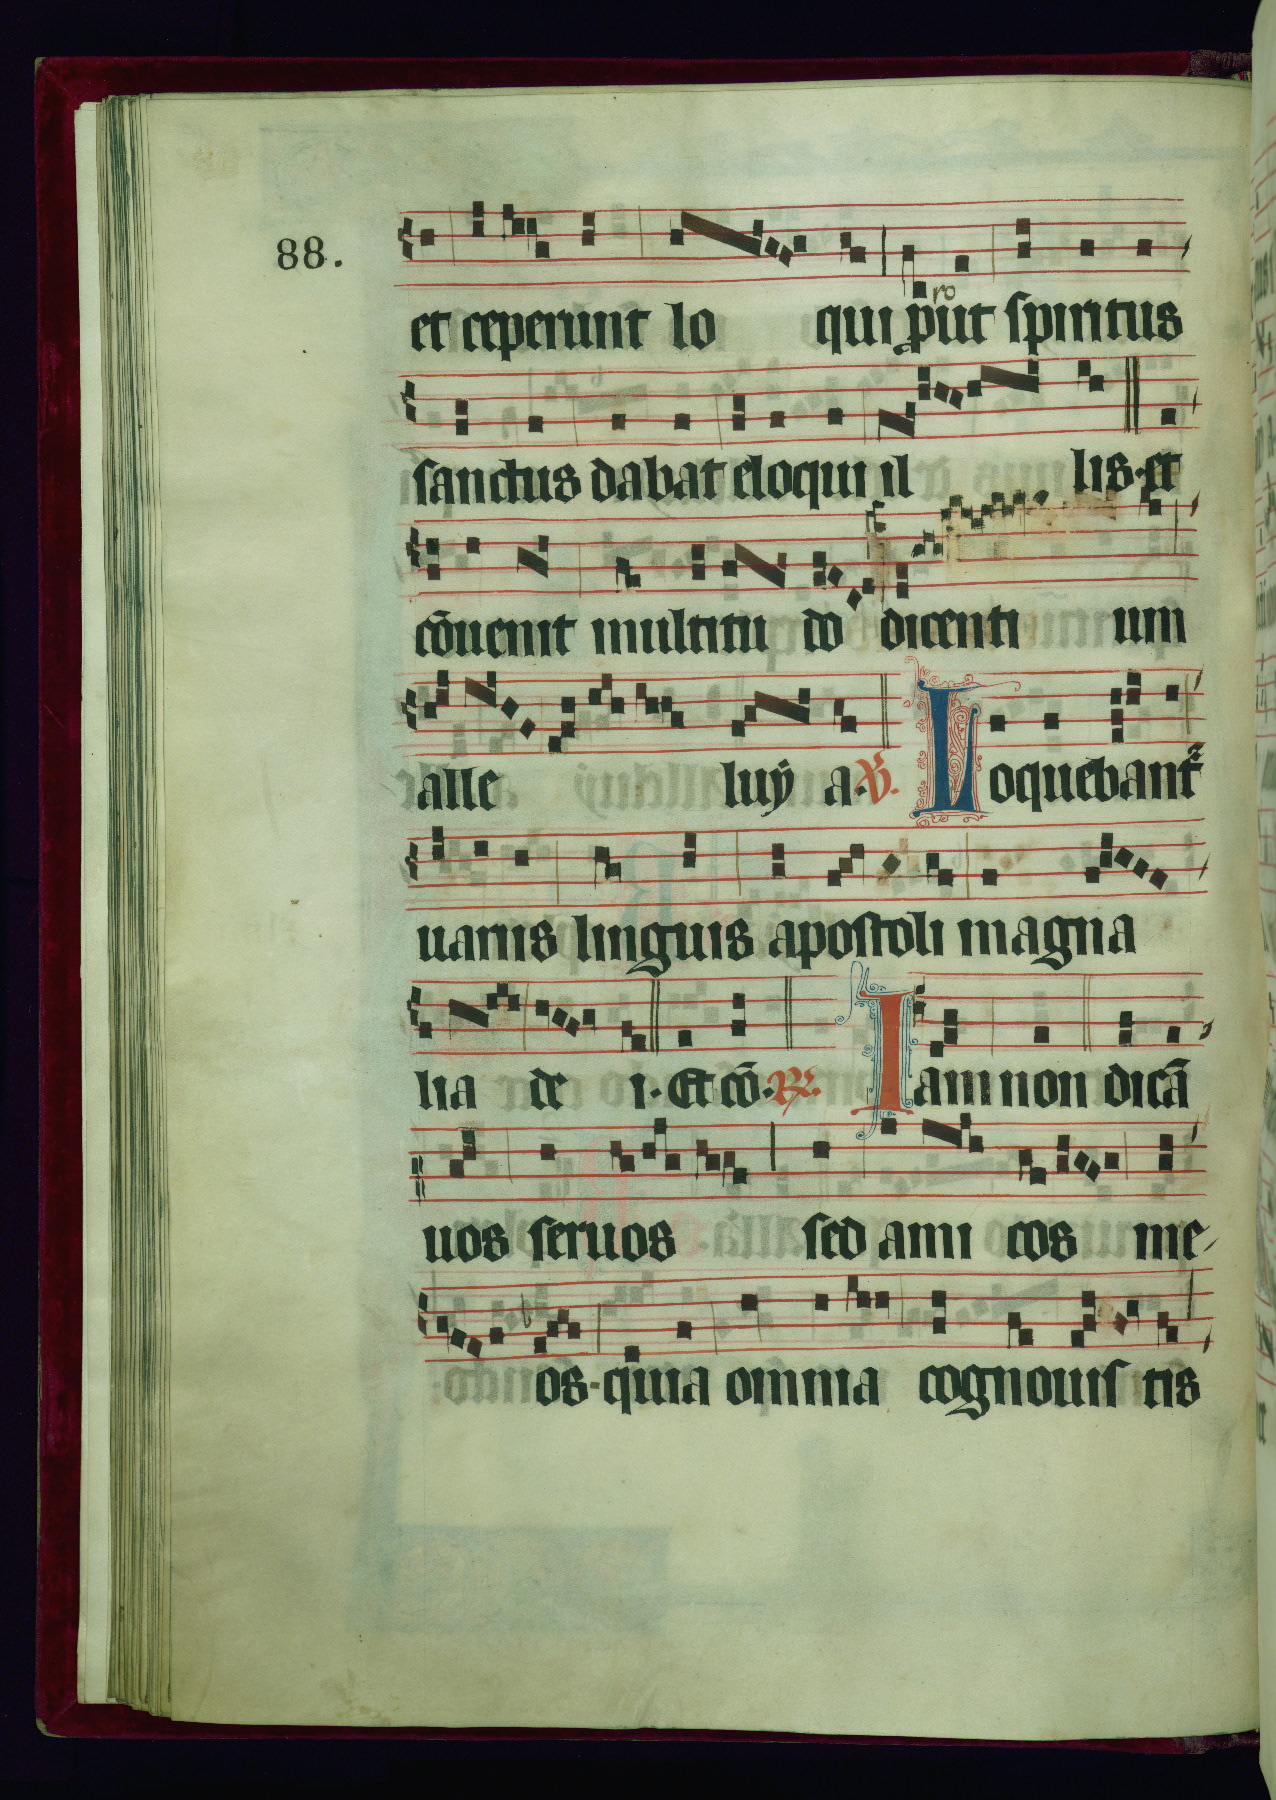 88.
ro
et ceperunt lo qui put spiritus
sanctus dabat eloqui il lis · et
cōuenit multitu do dicenti um
alle luÿ a · V. Loquebant
uariis linguis apostoli magna
lia de i · Et cō · R. Iam non dicā
uos seruos sed ami cos me
os · quia omnia cognouis tis